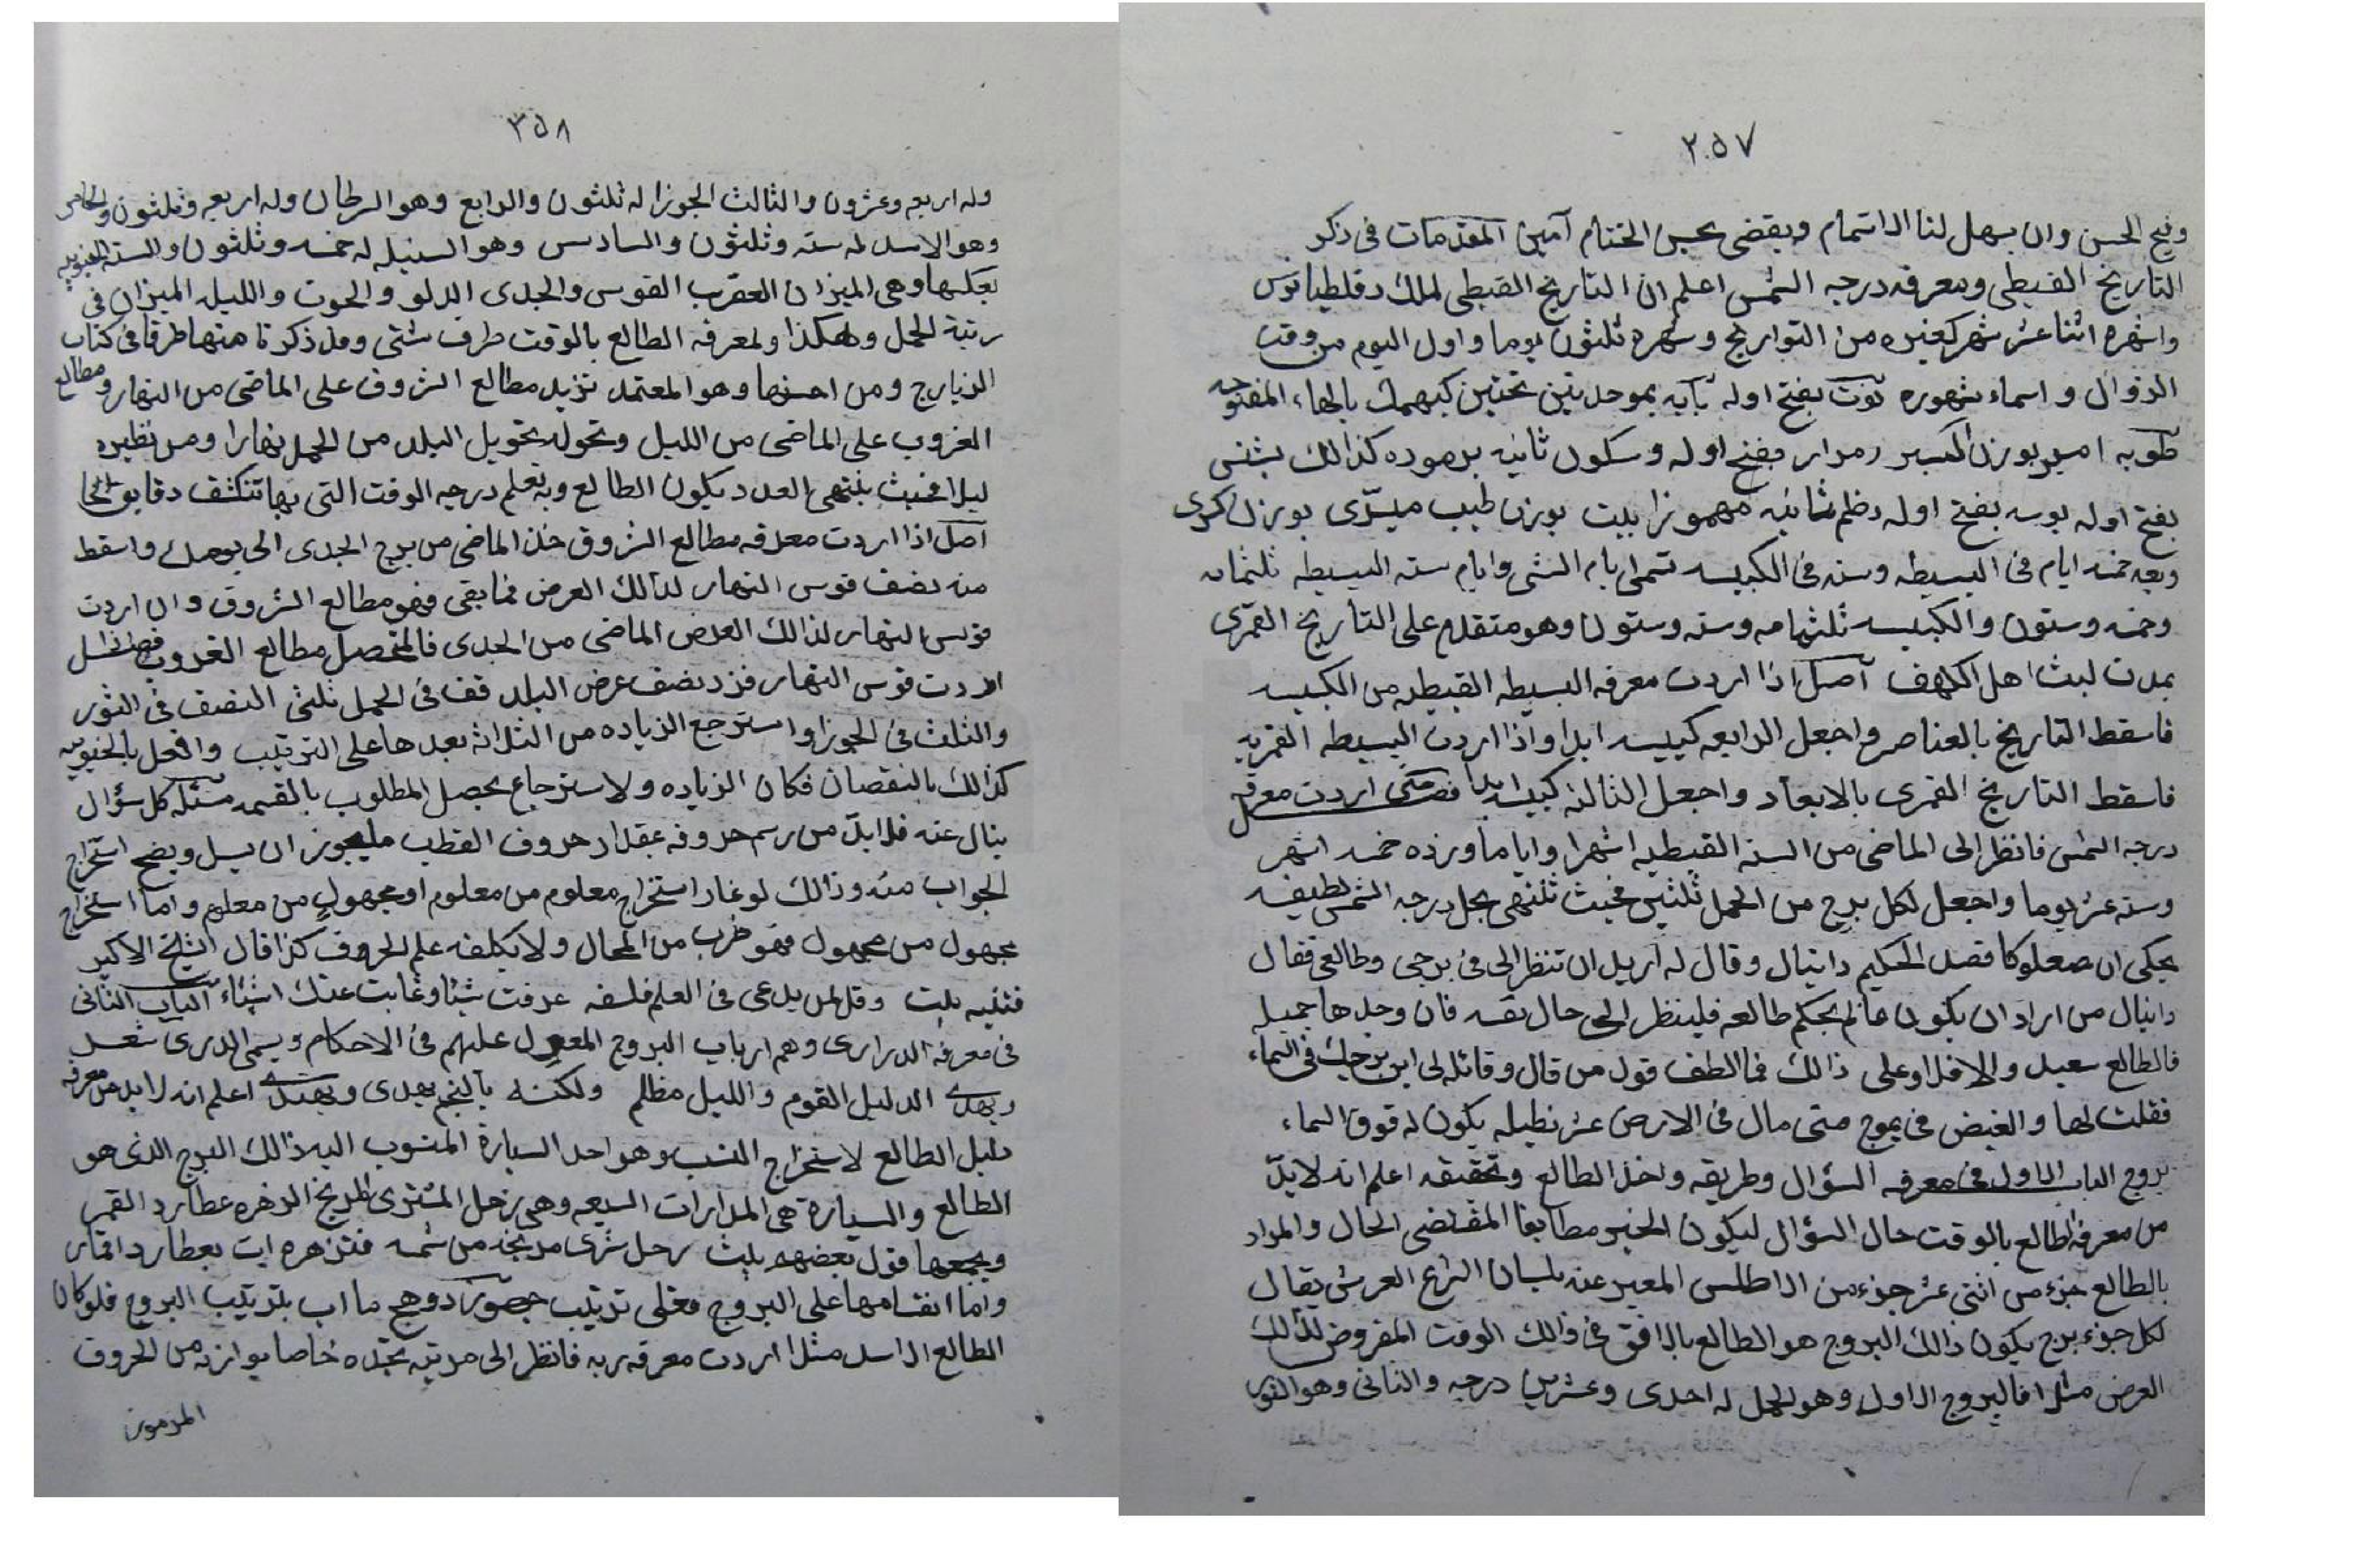 ٢٥٧
وفيح الحسن وان يسهل لنا الاستمام ويقضى بحسن الختام آمين المقدمات فى ذكر
التاريخ القبطى ومعرفه درجه الشمس اعلم ان التاريخ القبطى لملك دقلطيانوس
واشهره اثنا عشر شهر كغيره من التواريخ وشهره ثلثون يوما واول اليوم من وقت
الزوال واسماء شهوره توت بفتح اوله بآبه بموحدتين تحتين كيهمك بالهاء المفتوحه
طوبه امير بوزن بفتح اوله وسكون ثانيه برموده كذالك بشنس
بفتح اوله بونه بفتح اوله وظم ثانيه مهموزا بيت بوزن طيب مسرّى بوزن كرى
وبعد خمسه ايام فى البسيطه وسته فى الكبيسه تسمى ايام النسى وايام سنه البسيطه ثلثمائه
وخمسه وستون والكبيسه ثلثمايه وسته وستون وهو متقدم على التاريخ القمرى
بمدت لبث اهل الكهف آصل اذا اردت معرفه البسيطه القبطيه من الكبيسه
فاسقط التاريخ بالعناصر واجعل الرابعه كبيسه ابدا واذا اردت البسيطه القمريه
فاسقط التاريخ القمرى بالابعاد واجعل الثالثه كبيسه ابدا فصل متى اردت معرفه
درجه الشمس فانظر الى الماضى من السنه القبطيه اشهرا واياما وزده خمسه اشهر
وسته عشر يوما واجعل لكل برج من الحمل ثلثين فحيث تلتهى يحل درجه الشمس لطيفه
يحكى ان صعلوكا قصد الحكيم دانيال وقال له اريد ان تنظر الى فى برجى وطالعى فقال
دانيال من اراد ان يكون عالم بحكم طالعه فلينظر الى حال نفسه فان وجدها جميله
فالطالع سعيد والا فلا وعلى ذالك فما الطف قول من قال وقائله لى اين برجك فى السماء
فقلت لها والغيض فى يموج متى مال فى الارض عن نطيله يكون له فوق السماء
بروج الباب الاول فى معرفه السؤال وطريقه واخذ الطالع وتحقيقه اعلم انه لا بدّ
من معرفة الطالع بالوقت حال السؤال ليكون الخبر مطابقا المقتضى الحال والمراد
بالطالع جزء من اثنى عشر جزء من الاطلس المعبر عنه بلسان الشرع العرش يقال
لكل جزء برج يكون ذالك البروج هو الطالع بالافق فى ذالك الوقت المفروض لذالك
العرض مثلا فالبروج الاول وهو الحمل له احدى وعشرين درجه والثانى وهو الثور
٣٥٨
وله اربعه وعشرون والثالث الجوزا له ثلثون والرابع وهو السرطان وله اربعه وثلثون والخامس
وهو الاسد له سته وثلثون والسادس وهو السنبله له خمسه وثلثون والسته الجنوبيه
بعكسها وهى الميزان العقرب القوس والجدى الدلو والحوت والليل الميزان فى
رتبة الحمل وهكذا ولمعرفه الطالع بالوقت طرف شتى وقد ذكرنا منها طرقا فى كتاب
الزيارج ومن احسنها وهو المعتمد تزيد مطالع الشروق على الماضى من النهار ومطالع
الغروب على الماضى من الليل وتحوله بتحويل البلد من الحمل نهارا ومن نظيره
ليلا فحيث ينتهى العدد يكون الطالع وبه تعلم درجه الوقت التى بها تنكشف دقايق
آصل اذا اردت معرفه مطالع الشروق خذ الماضى من برج الجدى الى يومك واسقط
منه نصف قوس النهار لذالك العرض فما بقى فهو مطالع الشروق وان اردت
قوس النهار لذالك العرض الماضى من الجدى فالمتحصل مطالع الغروب
اردت قوس النهار فزد نصف عرض البلد فف فى الحمل ثلثى النصف فى الثور
والثلث فى الجوزا واسترجع الزياده من الثلاثه بعدها على الترتيب وافعل بالجنوبيه
كذالك بالنقصان فكان الزياده ولاسترجاع يحصل المطلوب بالقسمه مسئله كل سؤال
ينال عنه فلا بدّ من رسم حروفه بمقدار حروف القطب ان يسل ويضح استخراج
الجواب منه وذالك استخراج معلوم من معلوم او مجهول من معلوم واما استخراج
مجهول من مجهول فهو ضرب من المحال ولا يكلفه علم الحروف كذا قال الشيخ الاكبر
بيت وقل لمن يدعى فى العلم فلسفه عرفت شيئا وغابت عنك اشياء الباب الثانى
فى معرفة الدرارى وهم ارباب البروج المعول عليهم فى الاحكام ويسمى الدرى
ويهدى الدليل القوم والليل مظلم ولكنه بالنجم يهدى ويهتدى اعلم انه لا بد من معرفه
دليل الطالع لاستخراج النسب وهو احد السيارة المنسوب اليه ذالك البرج الذى هو
الطالع والسيارة هى المدارات السبعه وهى زحل المشترى المريخ الزهره عطارد القمر
ويجمعها قول بعضهم بيت زحل شرى مريخه من شمسه فتزهره ات بعطارد اقمار
واما انقسامها على البروج فعلى ترتيب بترتيب البروج فلو كان
الطالع الاسد مثلا اردت معرفه ربه فانظر الى مرتبه تجده خاصا يوازنه من الحروف
المرموز